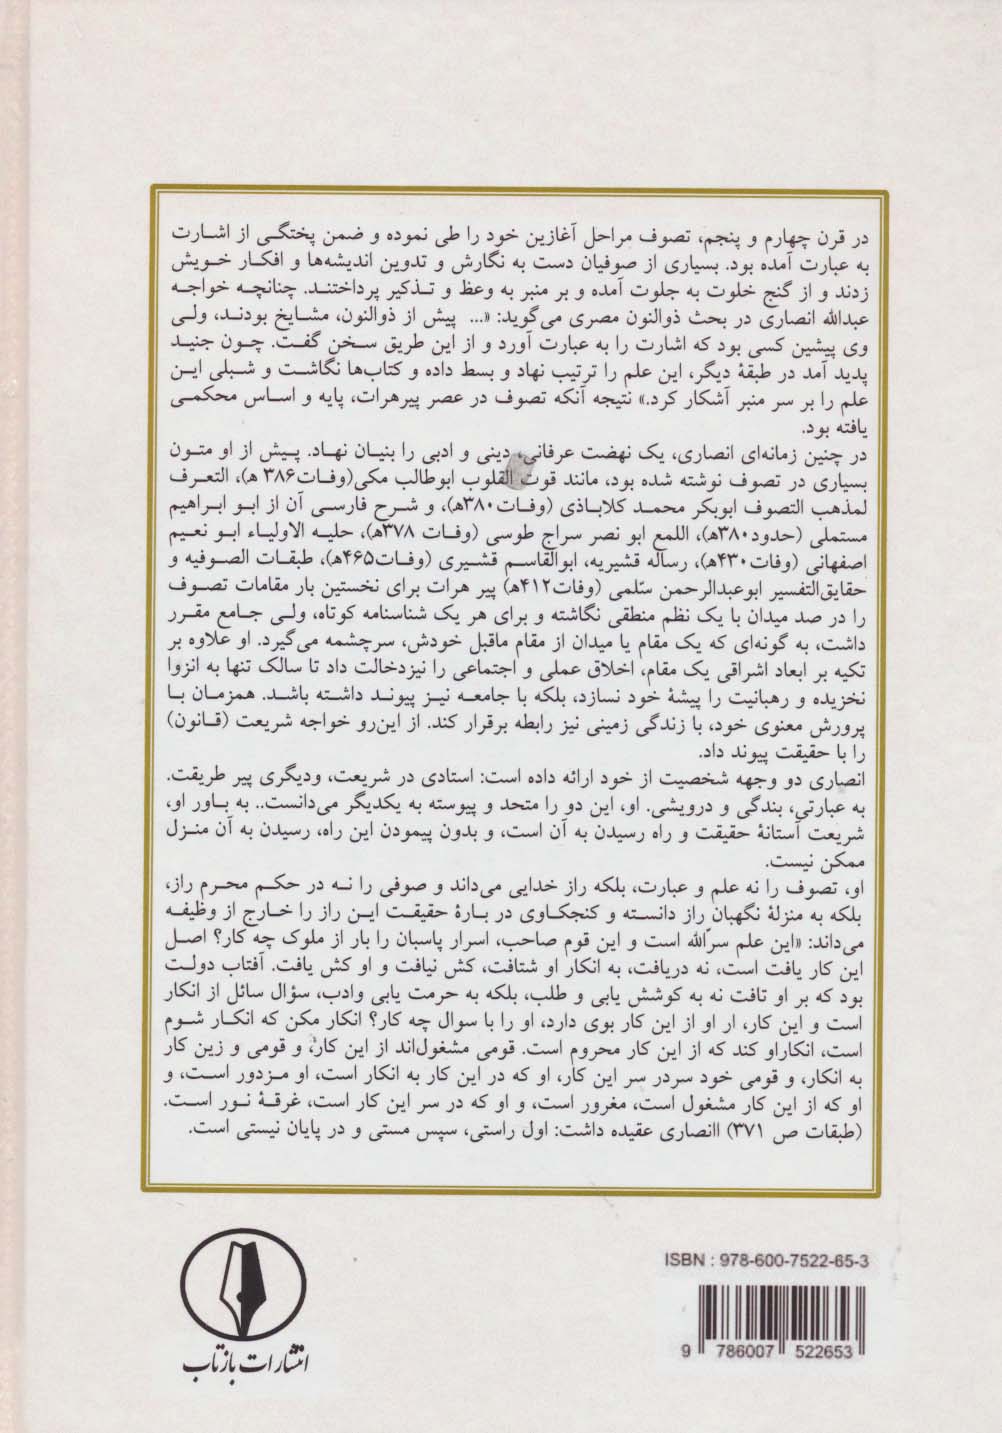 در قرن چهارم و پنجم، تصوف مراحل آغازین خود را طی نموده و ضمن پختگی از اشارت
به عبارت آمده بود. بسیاری از صوفیان دست به نگارش و تدوین اندیشه‌ها و افکار خویش
زدند و از گنج خلوت به جلوت آمده و بر منبر به وعظ و تذکیر پرداختند. چنانچه خواجه
عبدالله انصاری در بحث ذوالنون مصری می‌گوید: «... پیش از ذوالنون، مشایخ بودند، ولی
وی پیشین کسی بود که اشارت را به عبارت آورد و از این طریق سخن گفت. چون جنید
پدید آمد در طبقهٔ دیگر، این علم را ترتیب نهاد و بسط داده و کتاب‌ها نگاشت و شبلی این
علم را بر سر منبر آشکار کرد.» نتیجه آنکه تصوف در عصر پیرهرات، پایه و اساس محکمی
یافته بود.
در چنین زمانه‌ای انصاری، یک نهضت عرفانی، دینی و ادبی را بنیان نهاد. پیش از او متون
بسیاری در تصوف نوشته شده بود، مانند قوت القلوب ابوطالب مکی(وفات۳۸۶ ه‍)، التعرف
لمذهب التصوف ابوبکر محمد کلاباذی (وفات۳۸۰ه‍)، و شرح فارسی آن از ابو ابراهیم
مستملی (حدود۳۸۰ه‍)، اللمع ابو نصر سراج طوسی (وفات ۳۷۸ه‍)، حلیه الاولیاء ابو نعیم
اصفهانی (وفات۴۳۰ه‍)، رساله قشیریه، ابوالقاسم قشیری (وفات۴۶۵ه‍)، طبقات الصوفیه و
حقایق‌التفسیر ابوعبدالرحمن سّلمی (وفات۴۱۲ه‍) پیر هرات برای نخستین بار مقامات تصوف
را در صد میدان با یک نظم منطقی نگاشته و برای هر یک شناسنامه کوتاه، ولی جامع مقرر
داشت، به گونه‌ای که یک مقام یا میدان از مقام ماقبل خودش، سرچشمه می‌گیرد. او علاوه بر
تکیه بر ابعاد اشراقی یک مقام، اخلاق عملی و اجتماعی را نیزدخالت داد تا سالک تنها به انزوا
نخزیده و رهبانیت را پیشهٔ خود نسازد، بلکه با جامعه نیز پیوند داشته باشد. همزمان با
پرورش معنوی خود، با زندگی زمینی نیز رابطه برقرار کند. از این‌رو خواجه شریعت (قانون)
را با حقیقت پیوند داد.
انصاری دو وجهه شخصیت از خود ارائه داده است: استادی در شریعت، ودیگری پیر طریقت.
به عبارتی، بندگی و درویشی. او، این دو را متحد و پیوسته به یکدیگر می‌دانست.. به باور او،
شریعت آستانهٔ حقیقت و راه رسیدن به آن است، و بدون پیمودن این راه، رسیدن به آن منزل
ممکن نیست.
او، تصوف را نه علم و عبارت، بلکه راز خدایی می‌داند و صوفی را نه در حکم محرم راز،
بلکه به منزلهٔ نگهبان راز دانسته و کنجکاوی در بارهٔ حقیقت این راز را خارج از وظیفه
می‌داند: «این علم سرّالله است و این قوم صاحب، اسرار پاسبان را بار از ملوک چه کار؟ اصل
این کار یافت است، نه دریافت، به انکار او شتافت، کش نیافت و او کش یافت. آفتاب دولت
بود که بر او تافت نه به کوشش یابی و طلب، بلکه به حرمت یابی وادب، سؤال سائل از انکار
است و این کار، ار او از این کار بوی دارد، او را با سوال چه کار؟ انکار مکن که انکار شوم
است، انکاراو کند که از این کار محروم است. قومی مشغول‌اند از این کار، و قومی و زین کار
به انکار، و قومی خود سردر سر این کار، او که در این کار به انکار است، او مزدور است، و
او که از این کار مشغول است، مغرور است، و او که در سر این کار است، غرقهٔ نور است.
(طبقات ص ۳۷۱) اانصاری عقیده داشت: اول راستی، سپس مستی و در پایان نیستی است.
ISBN : 978-600-7522-65-3
9 786007 522653
انتشارات بازتاب